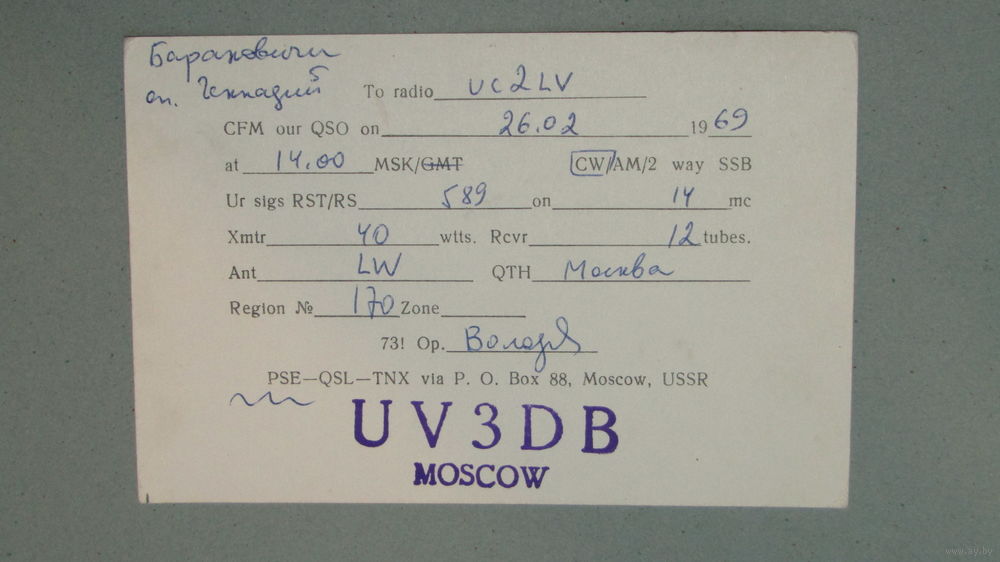 Барановичи
оп. Геннадий 5
To radio UC2LV
CFM our QSO on 26.02 1969
at 14.00 MSK/GMT CW/AM/2 way SSB
Ur sigs RST/RS 589 on 14 mc
Xmtr 40 wtts. Rcvr 12 tubes.
Ant LW QTH Москва
Region № 170 Zone
73! Op. Володя
PSE—QSL—TNX via P. O. Box 88, Moscow, USSR
UV3DB
MOSCOW
www.ay.by